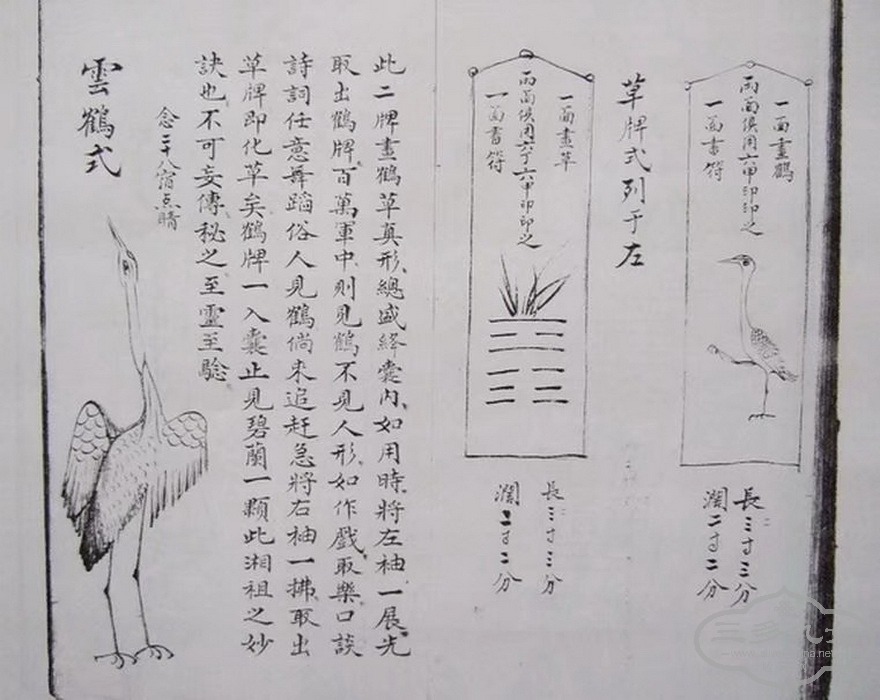 一面畫鶴
兩面俱用六甲印印之
一面書符
長三寸三分
濶二寸二分
草牌式列于左
一面畫草
兩面俱用六丁六甲印印之
一面書符
長三寸三分
濶二寸二分
此二牌畫鶴草真形、總盛絳囊內、如用時、將左袖一展、先
取出鶴牌、百萬軍中、則見鶴、不見人形、如作戲取樂、口談
詩詞、任意舞蹈、俗人見鶴、倘來追赶、急將右袖一拂、取出
草牌即化草矣、鶴牌一入囊、止見碧蘭一顆、此湘祖之妙
訣也、不可妄傳、秘之至靈至騐
念二十八宿点睛
雲鶴式